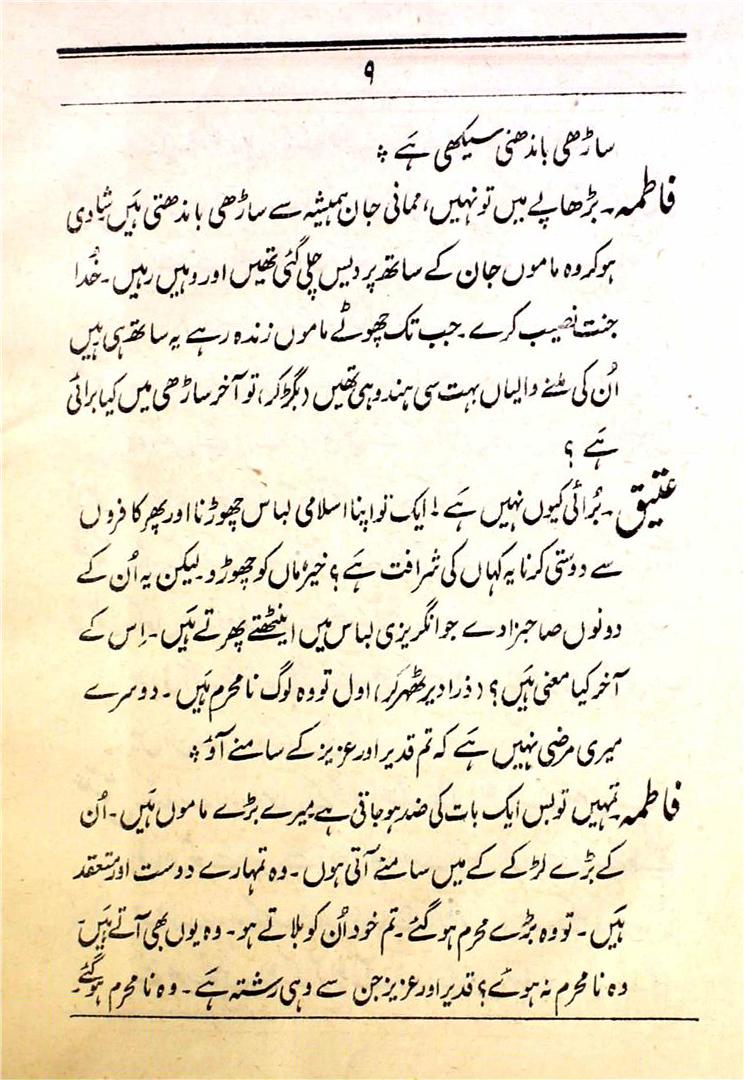 ۹
ساڑھی باندھنی سیکھی ہے ؞
فاطمہ۔ بڑھاپے میں تو نہیں، ممانی جان ہمیشہ سے ساڑھی باندھتی ہیں شادی
ہوکر وہ ماموں جان کے ساتھ پردیس چلی گئی تھیں اور وہیں رہیں۔ خُدا
جنت نصیب کرے۔ جب تک چھوٹے ماموں زندہ رہے یہ ساتھ ہی ہیں
اُن کی ملنے والیاں بہت سی ہندو ہی تھیں (بگڑکر) تو آخر ساڑھی میں کیا برائی
ہے ؟
عتیق۔ بُرائی کیوں نہیں ہے! ایک تو اپنا اسلامی لباس چھوڑنا اور پھر کافروں
سے دوستی کرنا یہ کہاں کی شرافت ہے؟ خیر ماں کو چھوڑو۔ لیکن یہ اُن کے
دونوں صاحبزادے جو انگریزی لباس میں اینٹھتے پھرتے ہیں۔ اِس کے
آخر کیا معنی ہیں؟ (ذرا دیر ٹھہر کر) اول تو وہ لوگ نامحرم ہیں۔ دوسرے
میری مرضی نہیں ہے کہ تم قدیر اور عزیز کے سامنے آؤ ؞
فاطمہ۔ تمہیں تو بس ایک بات کی ضد ہو جاتی ہے میرے بڑے ماموں ہیں۔ اُن
کے بڑے لڑکے کے میں سامنے آتی ہوں۔ وہ تمہارے دوست اور معتقد
ہیں۔ تو وہ بڑے محرم ہو گئے۔ تم خود اُن کو بلاتے ہو۔ وہ یوں بھی آتے ہیں۔
وہ نامحرم نہ ہوئے؟ قدیر اور عزیز جن سے وہی رشتہ ہے۔ وہ نامحرم ہو گئے۔